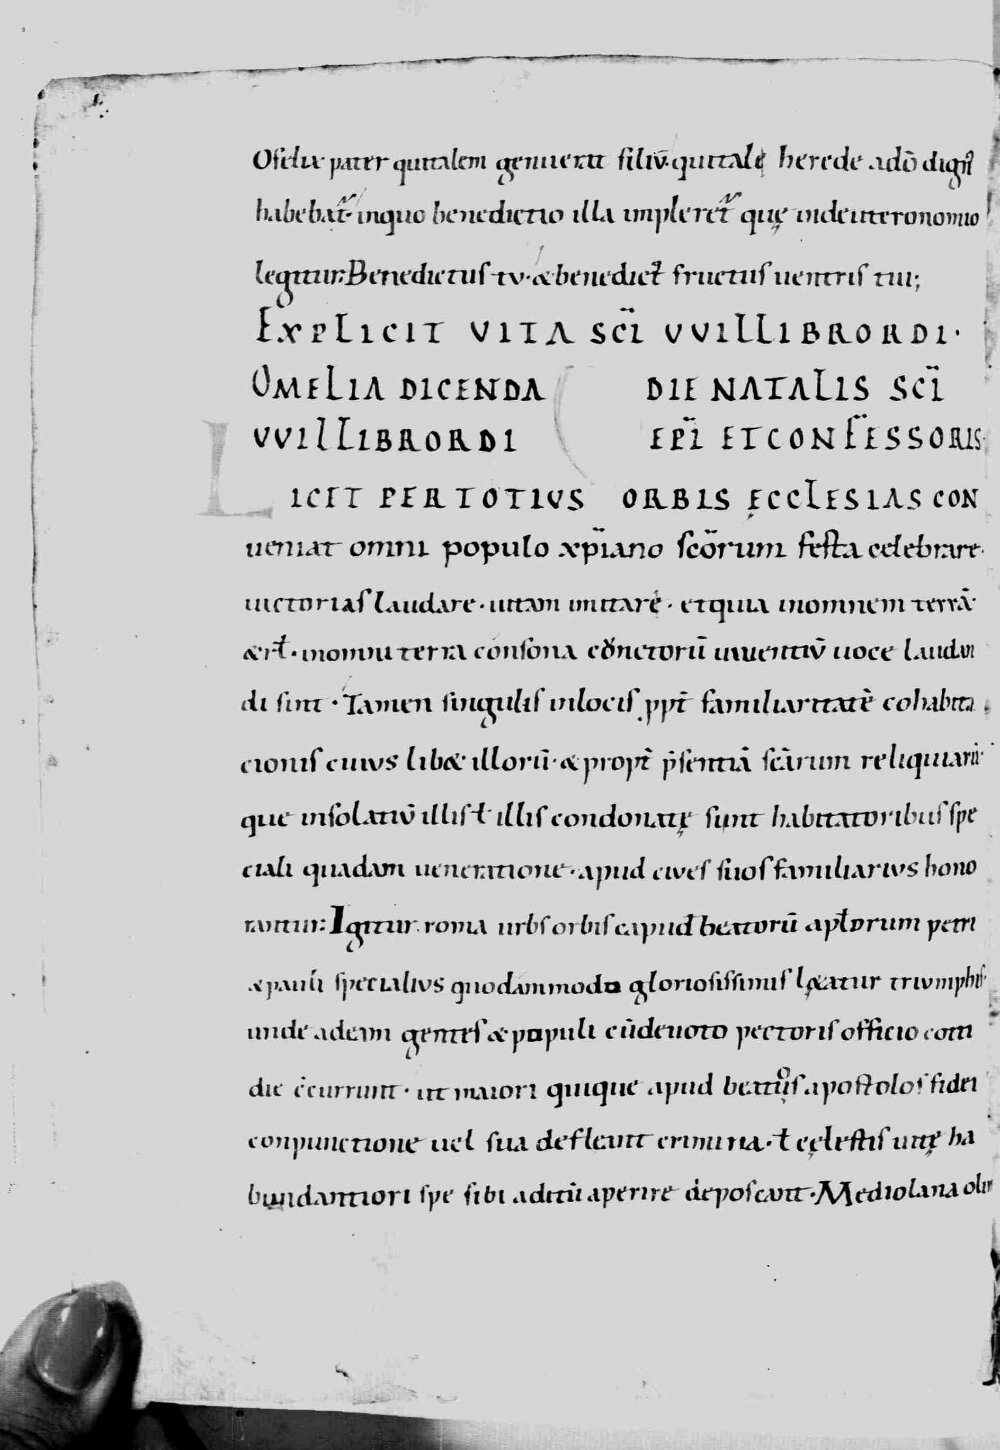 O felix pater qui talem genuerat filiū. qui talē herede a dō dignū
habebat̄· in quo benedictio illa impleret̄ quę in deuteronomio
legitur: Benedictus tu· & benedict̄ fructus uentris tui;
EXPLICIT VITA SC̄I VVILLIBRORDI·
OMELIA DICENDA DIE NATALIS SC̄I
VVILLIBRORDI EP̄I ET CONFESSORIS·
LICET PER TOTIUS ORBIS ĘCCLESIAS CON
ueniat omni populo xp̄iano sc̄orum festa celebrare·
uictorias laudare· uitam imitare· et quia in omnem terrā·
& in omni terra consona cunctorū uiuentiū uoce laudan
di sint· Tamen singulis in locis ꝓpt̄ familiaritatē cohabita
cionis cuius lib& illorū· & propt̄ p̄sentiā sc̄arum reliquiarū·
que in solatiū illis ł illis condonatę sunt habitatoribus spe
ciali quadam ueneratione· apud ciues suos familiarius hono
rantur: Igitur roma urbs orbis capud beatorū apl̄orum petri
& pauli specialius quodammodo gloriosissimis lętatur triumphis·
unde ad eam gentes & populi cū deuoto pectoris officio coti
die c̄currunt· ut maiori quique apud beatos apostolos fidei
conpunctione uel sua defleant crimina· ł cęlestis uitę ha
bundantiori spe sibi aditū aperire deposcant· Mediolana olim